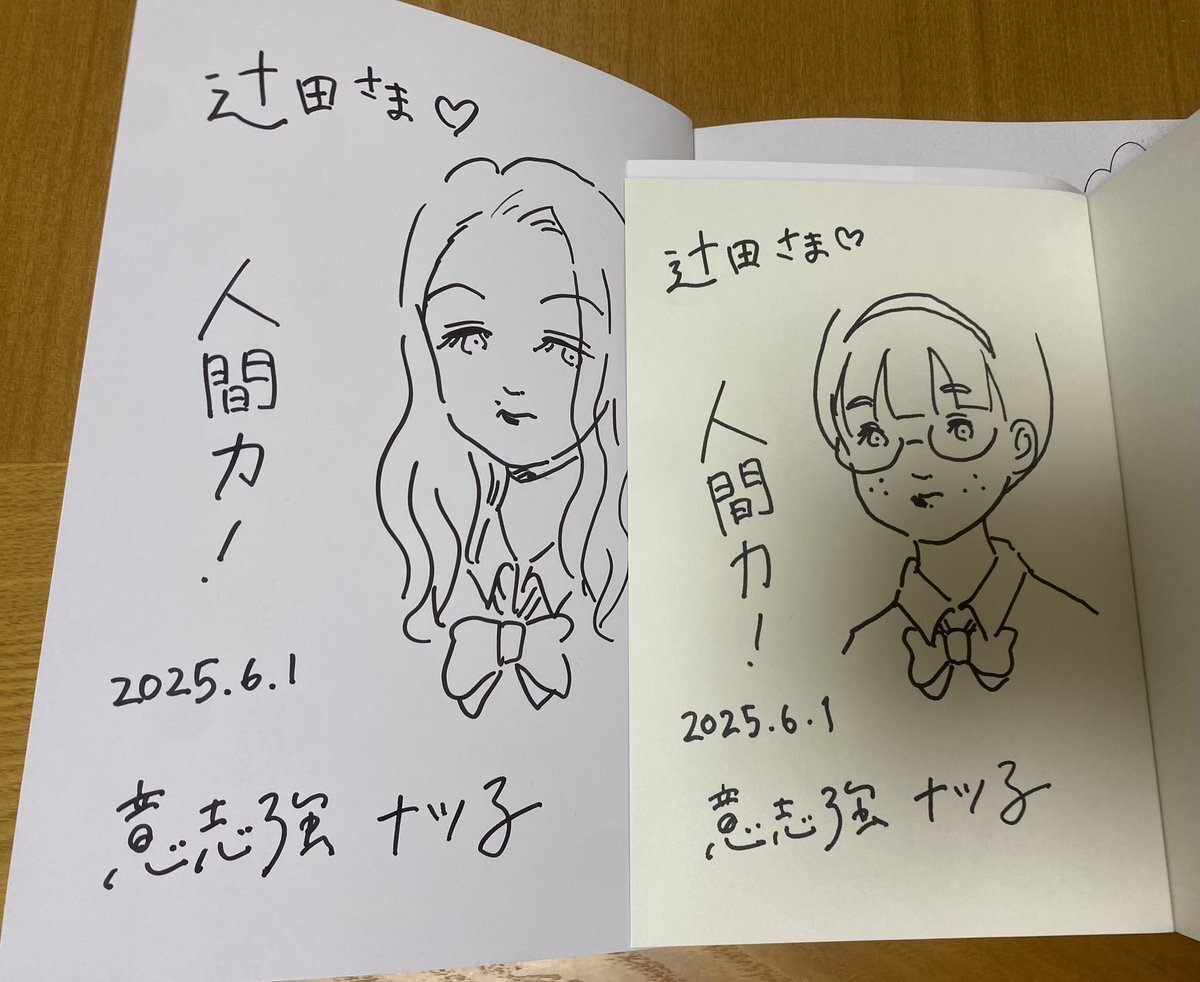 辻田さま♡
人間力！
2025.6.1
意志強ナツ子
辻田さま♡
人間力！
2025.6.1
意志強ナツ子